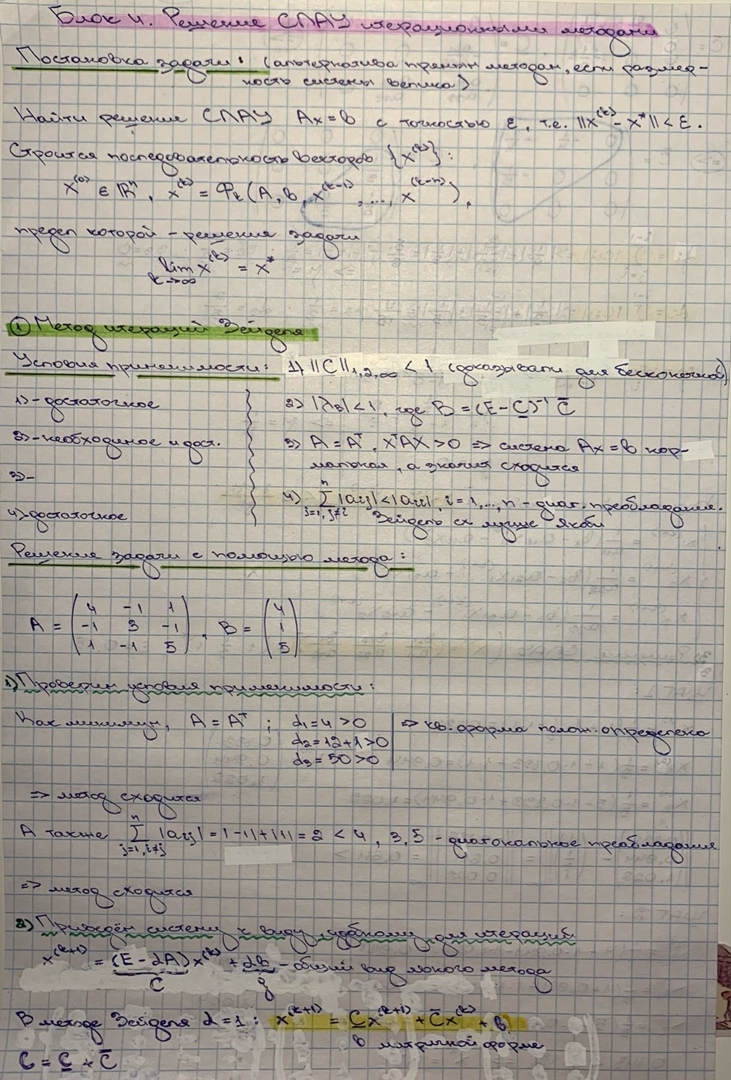 Блок 4. Решение СЛАУ итерационными методами
Постановка задачи: (альтернатива прямым методам, если размер-
ность системы велика)
Найти решение СЛАУ Ax=b с точностью ε, т.е. ||x^(k) - x^*|| < ε.
Строится последовательность векторов {x^(k)}:
x^(0) ∈ ℝ^n, x^(k) = Φ_k(A, b, x^(k-1), ..., x^(k-n)),
предел которой - решение задачи
lim_{k→∞} x^(k) = x^*
① Метод итераций Зейделя
Условия применимости: 1) ||C||_{1,2,∞} < 1 (доказывали для бесконечной)
1) - достаточное
2) |λ_B| < 1, где B = (E - C̲)^{-1} C̄
2) - необходимое и дост.
3) A = A^T, X^TAX > 0 ⇒ система Ax = b нор-
мальная, а значит сходится
3) -
4) Σ_{j=1, j≠i}^n |a_ij| < |a_ii|, i = 1, ..., n - диаг. преобладание.
4) достаточное
Зейдель сх лучше Якоби
Решение задачи с помощью метода:
A = ( 4 -1 1
-1 3 -1
1 -1 5 ), B = ( 4
1
5 )
1) Проверим условия применимости:
Как минимум, A = A^T ; d₁ = 4 > 0 ⇒ кв. форма полож. определена
d₂ = 12+1 > 0
d₃ = 50 > 0
⇒ метод сходится
А также Σ_{j=1, i≠j}^n |a_ij| = |-1| + |1| = 2 < 4, 3, 5 - диагональное преобладание
⇒ метод сходится
2) Приведём систему к виду, удобному для итераций:
x^(k+1) = (E - αA) x^(k) + αb - общий вид любого метода
C g
В методе Зейделя α = 1: x^(k+1) = C̲x^(k+1) + C̄x^(k) + b
в матричной форме
C = C̲ + C̄